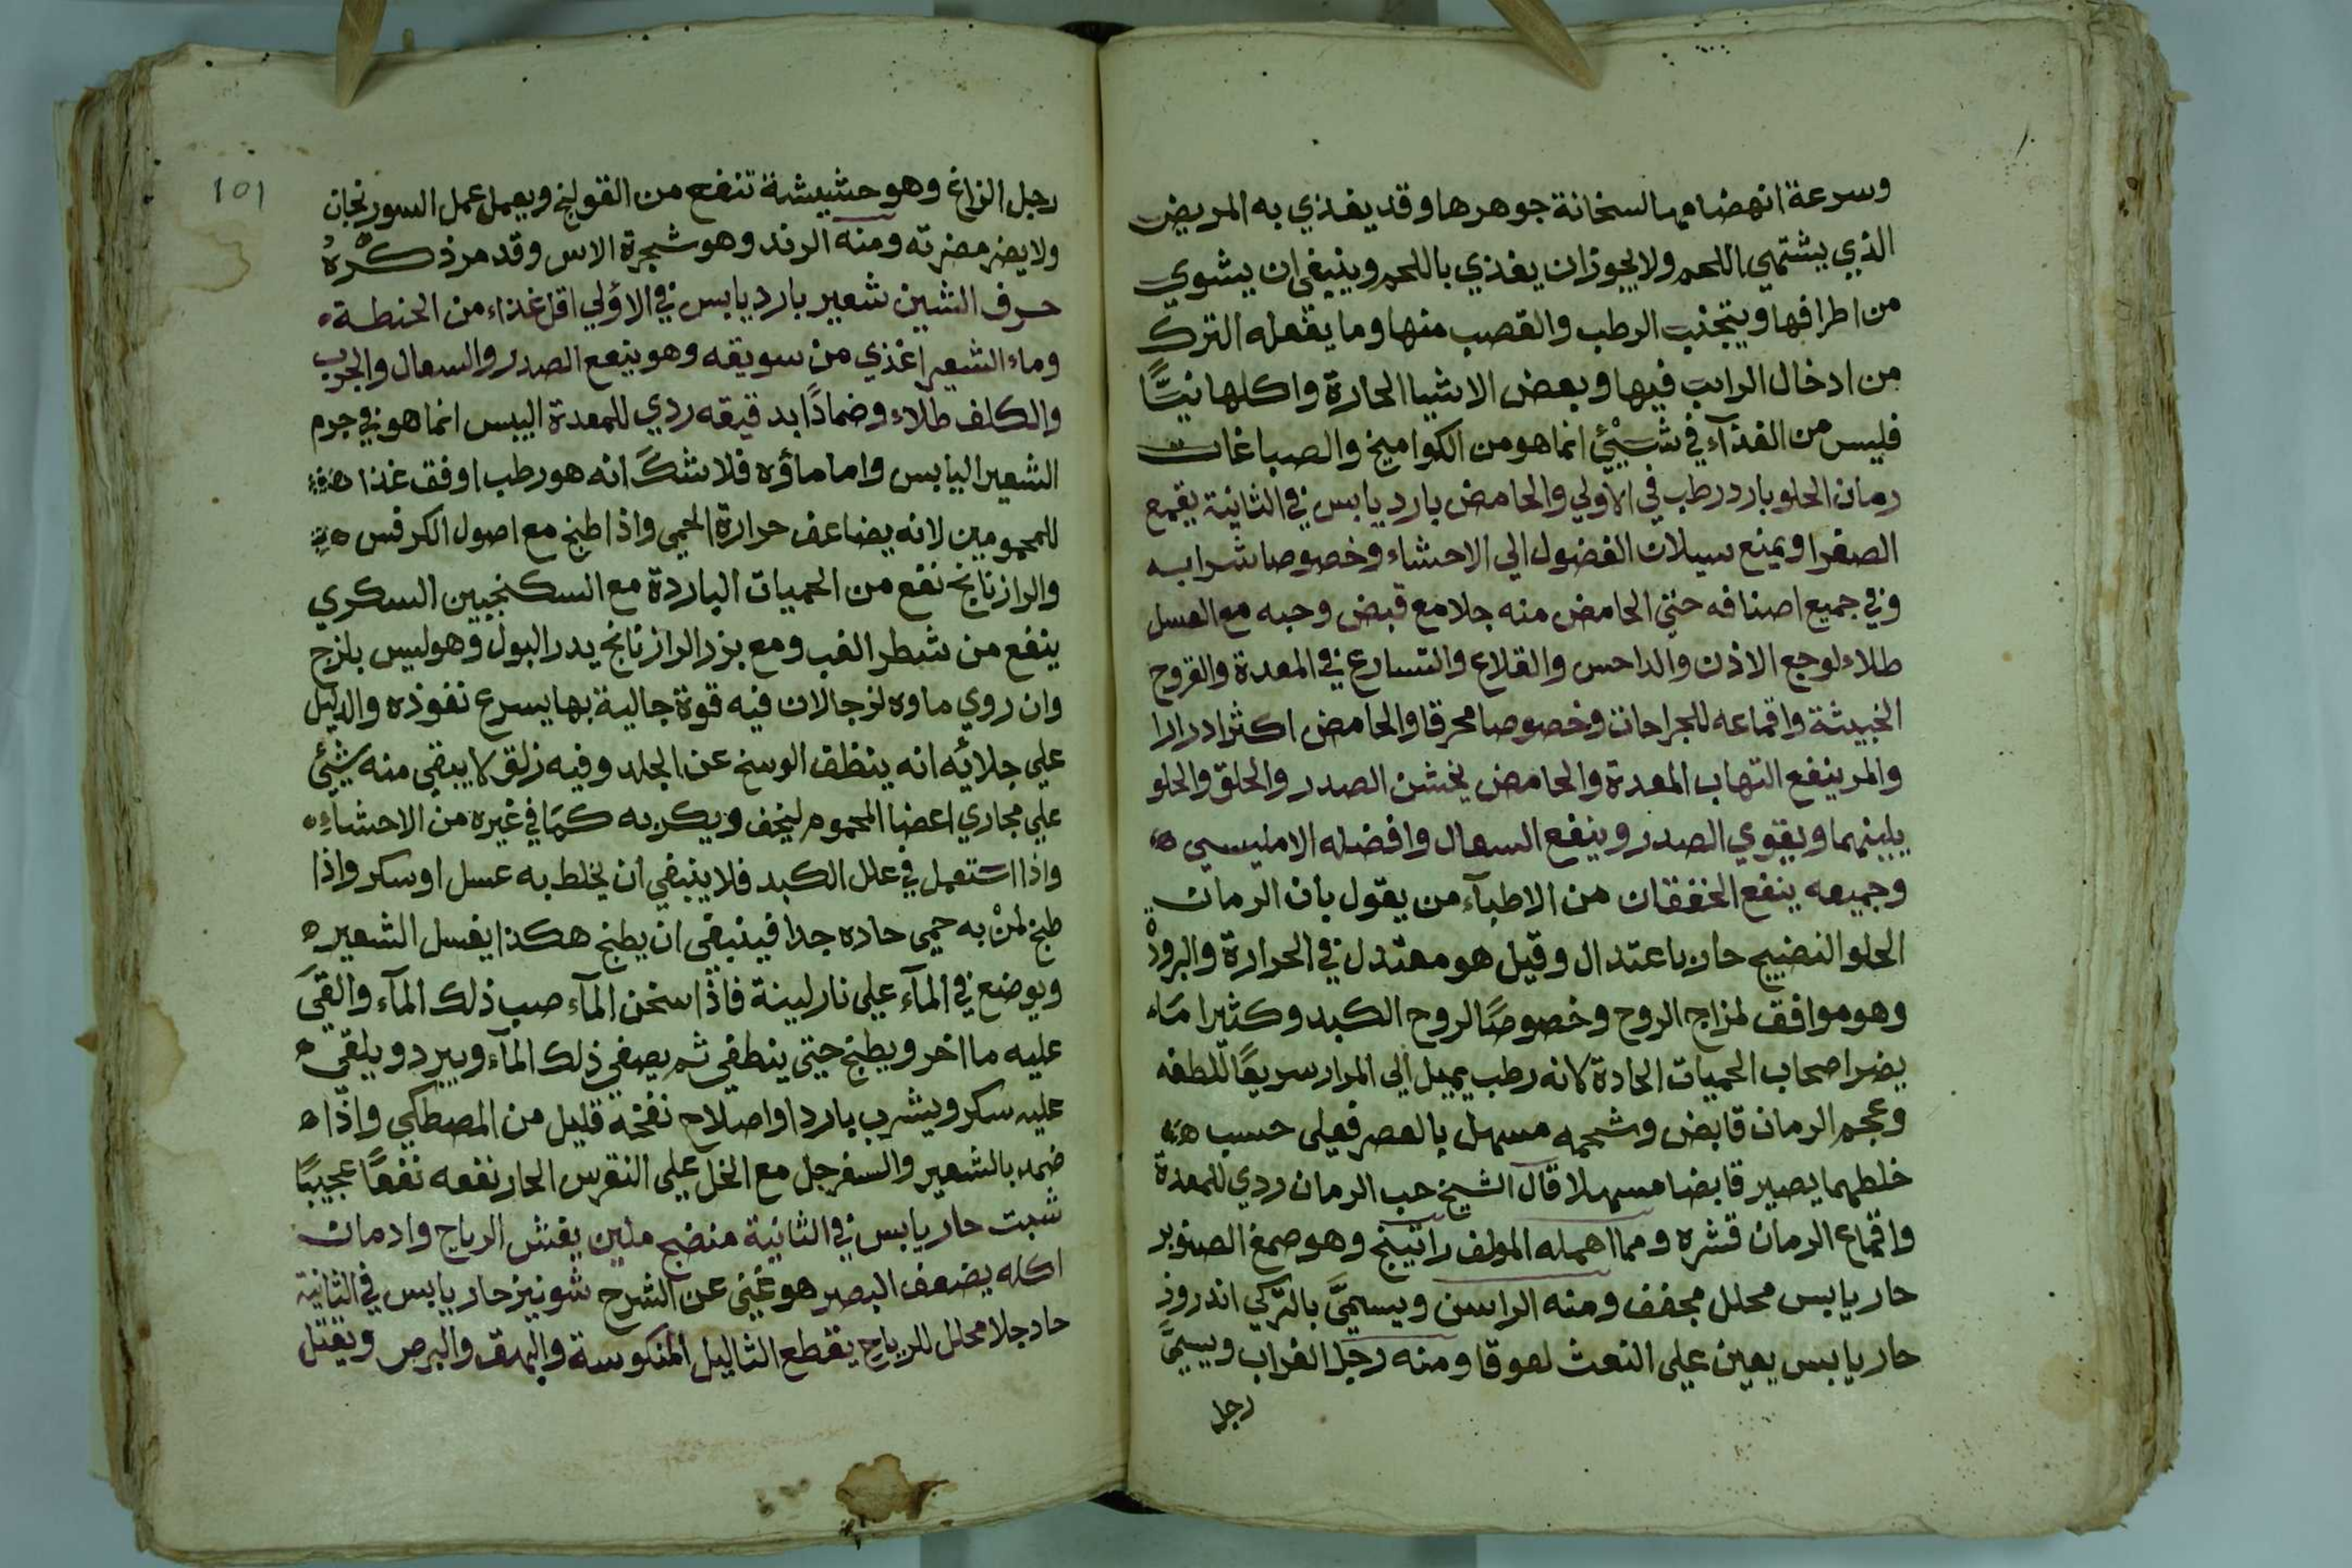 وسرعة انهضامها لسخانة جوهرها وقد يغذي به المريض
الذي يشتهي اللحم ولا يجوز ان يغذي باللحم وينبغي ان يشوي
من اطرافها ويتجنب الرطب والقصب منها وما يفعله الترك
من ادخال الراتب فيها وبعض الاشيا الحارة واكلها نيًّا
فليس من الغذآء في شيئ انما هو من الكواميخ والصباغات
رمان الحلو بارد رطب في الاولي والحامض بارد يابس في الثانية يقمع
الصفرا ويمنع سيلان الفضول الي الاحشاء وخصوصا شرابه
وفي جميع اصنافه حتي الحامض منه جلا مع قبض وحبه مع العسل
طلاء لوجع الاذن والداحس والقلاع والتسارع في المعدة والقروح
الخبيثة واقماعه للجراحات وخصوصا محرقا والحامض اكثر ادرارا
والمر ينفع التهاب المعدة والحامض يخشن الصدر والحلق والحلو
يلينهما ويقوي الصدر وينفع السعال وافضله الامليسي
وجميعه ينفع الخفقان من الاطبآء من يقول بان الرمان
الحلو النضيج حار باعتدال وقيل هو معتدل في الحرارة والبرودة
وهو موافق لمزاج الروح وخصوصًا لروح الكبد وكثيرا ما
يضر اصحاب الحميات الحادة لانه رطب يميل الي المرار سريعًا للطفه
وعجم الرمان قابض وشحمه مسهل بالعصر فعلي حسب
خلطهما يصير قابضا مسهلا قال الشيخ حب الرمان ردي للمعدة
واقماع الرمان قشره ومما اهمله المولف راتينج وهو صمغ الصنوبر
حار يابس محلل مجفف ومنه الراسن ويسميَّ بالتركي اندروز
حار يابس يعين علي النعث لعوقا ومنه رجل الغراب ويسميَّ
رجل
101
رجل الزاغ وهو حشيشة تنفع من القولنج ويعمل عمل السورنجان
ولا يضر مضرته ومنه الرند وهو شجرة الاس وقد مر ذكره
حرف الشين شعير بارد يابس في الاولي اقل غذاء من الحنطة
وماء الشعير اغذي من سويقه وهو ينفع الصدر والسعال والجرب
والكلف طلاء وضمادًا بدقيقه ردي للمعدة اليبس انما هو في جرم
الشعير اليابس واما ماؤه فلا شكّ انه هو رطب اوفق غذا
للمحمومين لانه يضاعف حرارة الحمي واذا طبخ مع اصول الكرفس
والرازنانج نفع من الحميات الباردة مع السكنجبين السكري
ينفع من شطر الغب ومع بزر الرازنانج يدر البول وهو ليس بلزج
وان روي ماوه لزجا لان فيه قوة جالية بها يسرع نفوذه والدليل
علي جلائه انه ينظف الوسخ عن الجلد وفيه زلق لا يبقي منه شيئ
علي مجاري اعضا المحموم ليخف ويكر به كما في غيره من الاحشاء
واذا استعمل في علل الكبد فلا ينبغي ان يخلط به عسل او سكر واذا
طبخ لمن به حمي حاده جدا فينبغي ان يطبخ هكذا يغسل الشعير
ويوضع في المآء علي نار لينة فاذا سخن المآء صب ذلك المآء والقيَ
عليه ما اخر ويطبخ حتي ينطفي ثم يصفي ذلك المآء ويبرد ويلقي
عليه سكر ويشرب باردا واصلاح نفخة قليل من المصطكي واذا
ضمد بالشعير والسفرجل مع الخل علي النقرس الحار نفعه نفعًا عجيبًا
شبت حار يابس في الثانية منضج ملين يفش الرياح وادمان
اكله يضعف البصر هو غني عن الشرح شونيز حار يابس في الثانية
حاد جلا محلل للرياح يقطع الثاليل المنكوسة والبهق والبرص ويقتل